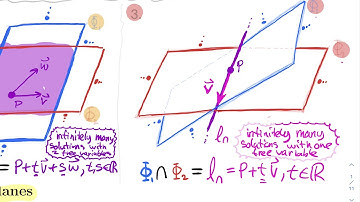 3
P₁
P₂
w⃗
P
v⃗
infinitely many
solutions with
2 free variables
= P+tv⃗+sw⃗, t,s∈ℝ
lanes
P
v⃗
ln
infinitely many
solutions with one
free variable
P₁ ∩ P₂ = ln = P+tv⃗, t∈ℝ